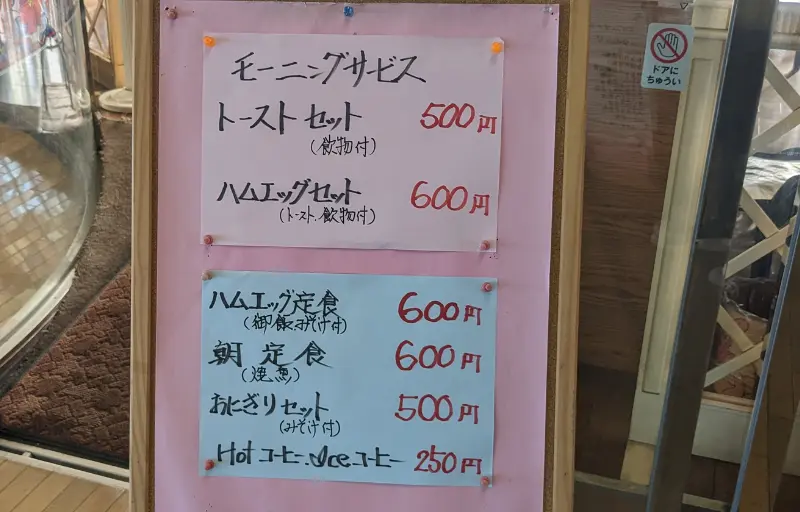 モーニングサービス
トーストセット 500円
(飲物付)
ハムエッグセット 600円
(トースト.飲物付)
ハムエッグ定食 600円
(御飯みそ汁付)
朝定食 600円
(焼魚)
おにぎりセット 500円
(みそ汁付)
Hotコーヒー.Iceコーヒー 250円
ドアに
ちゅうい